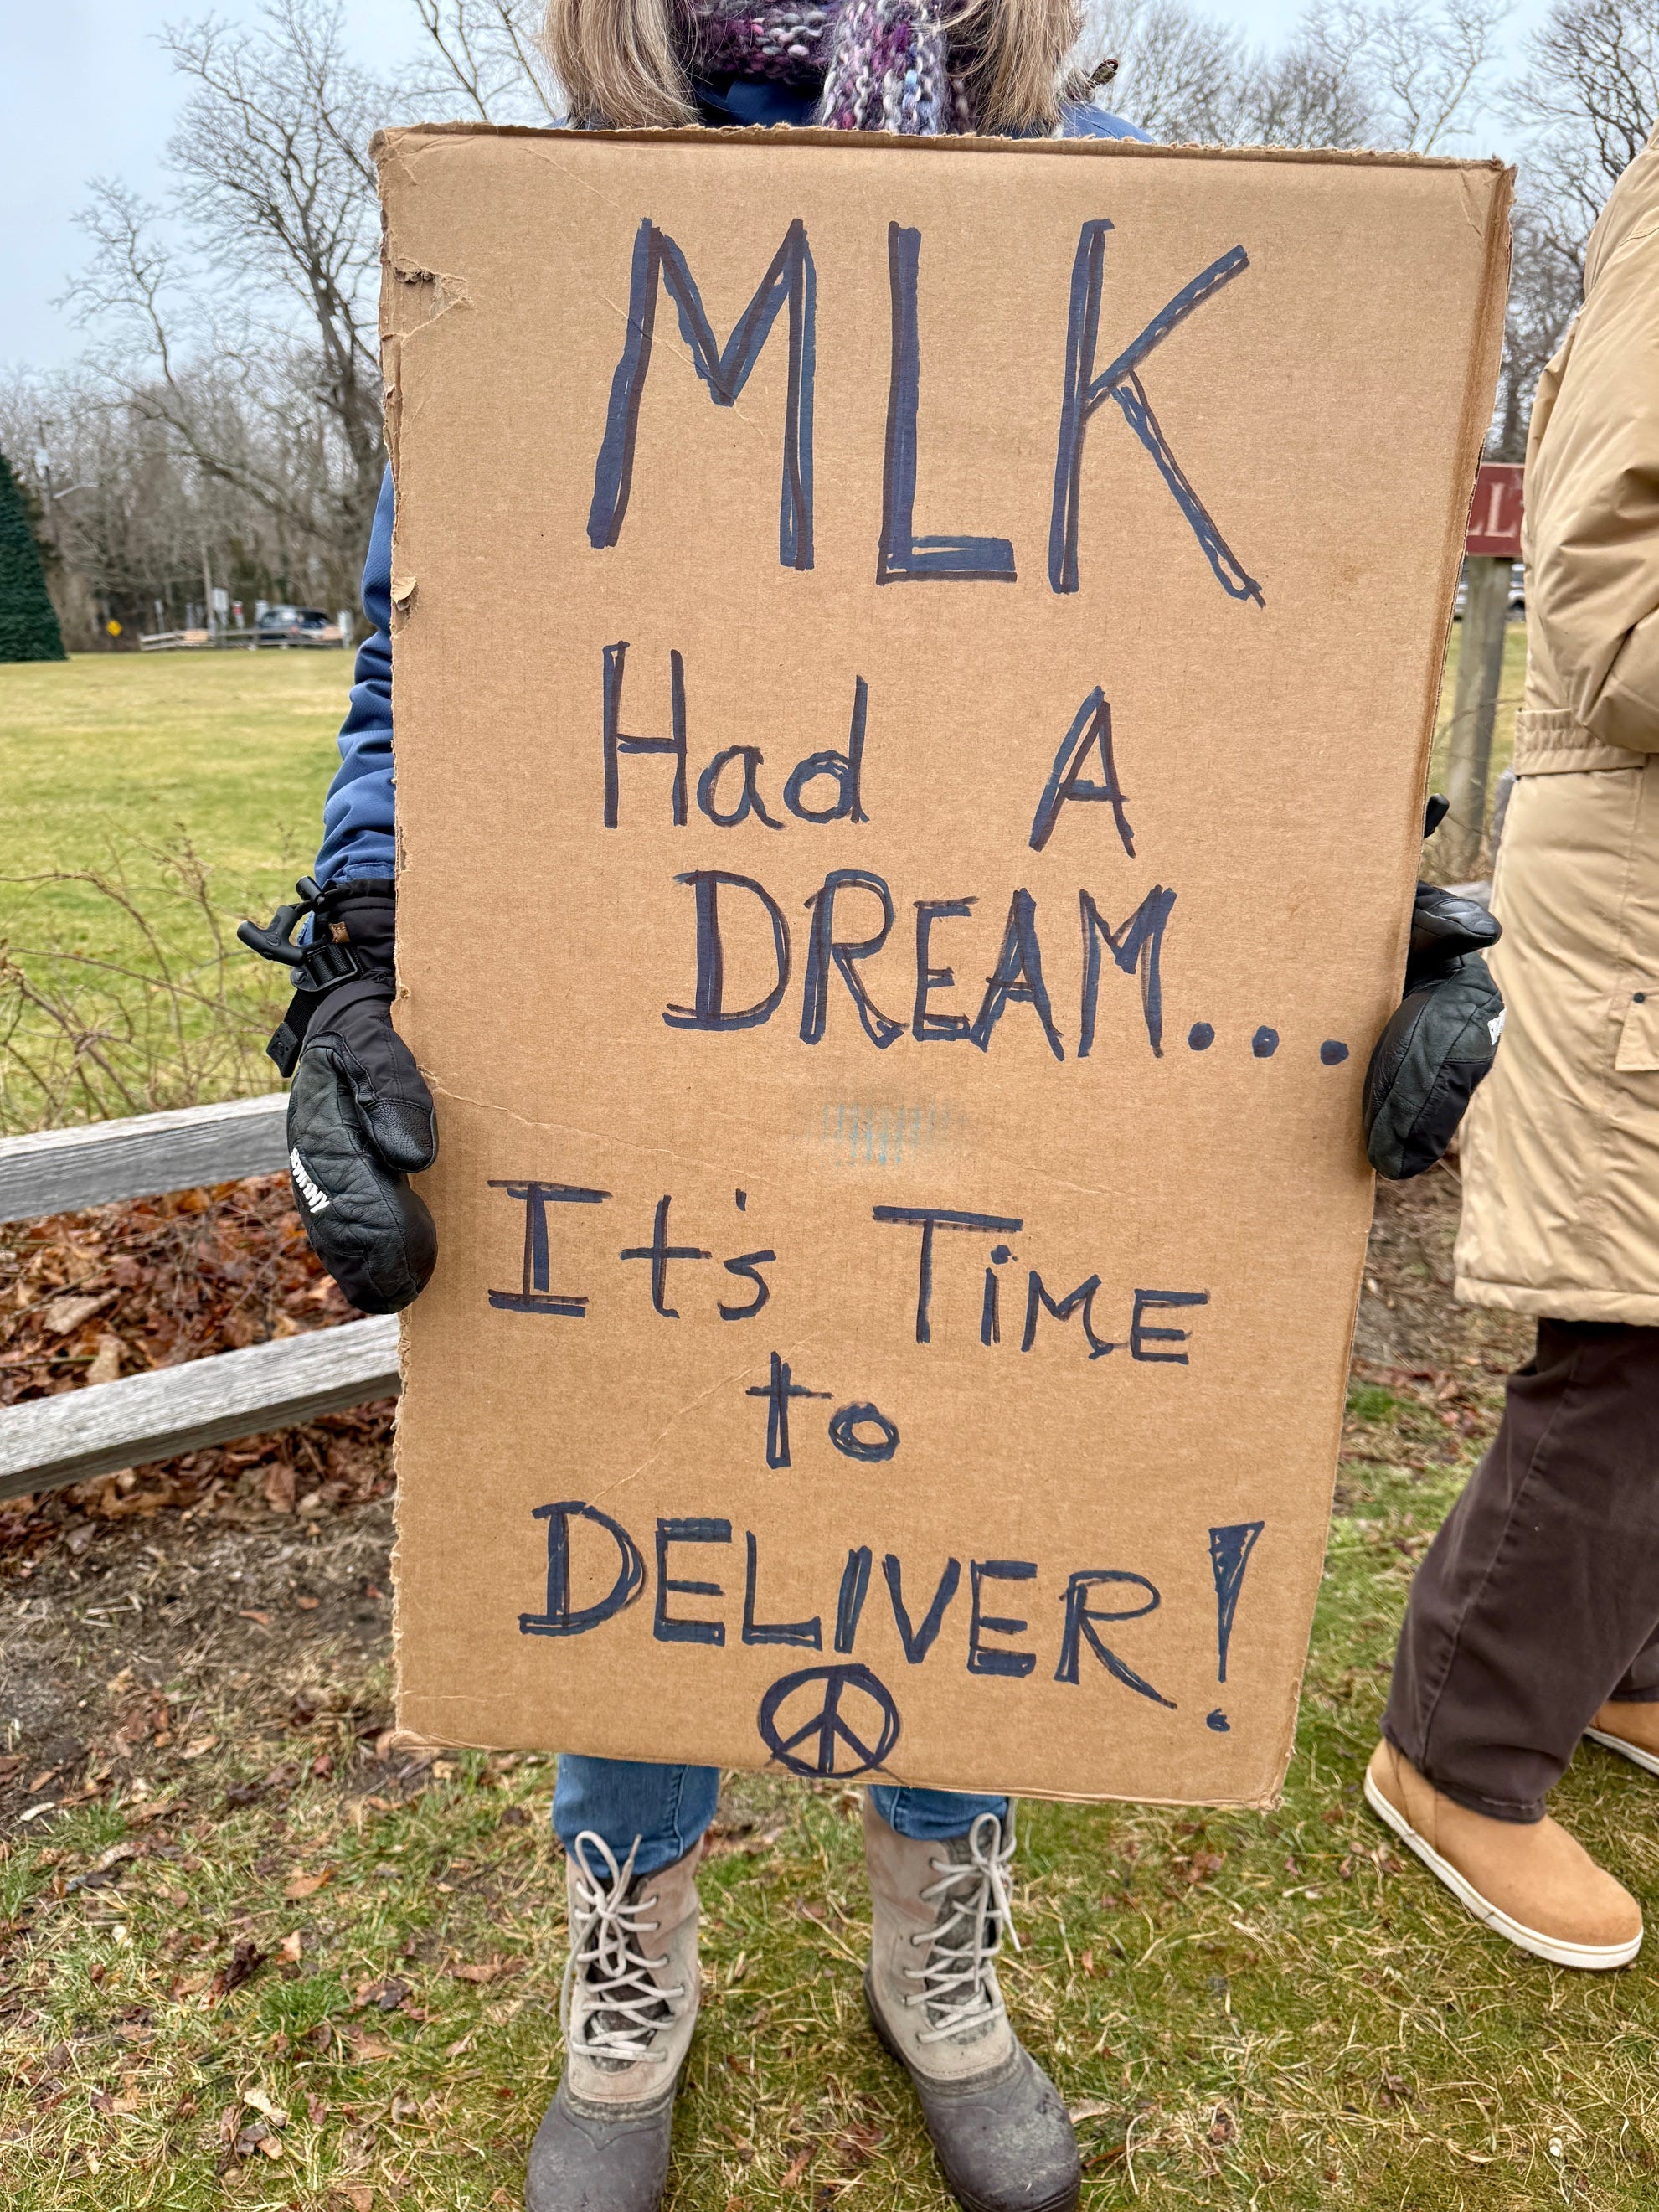 MLK
Had A
DREAM...
It's TiME
to
DELIVER!
LL